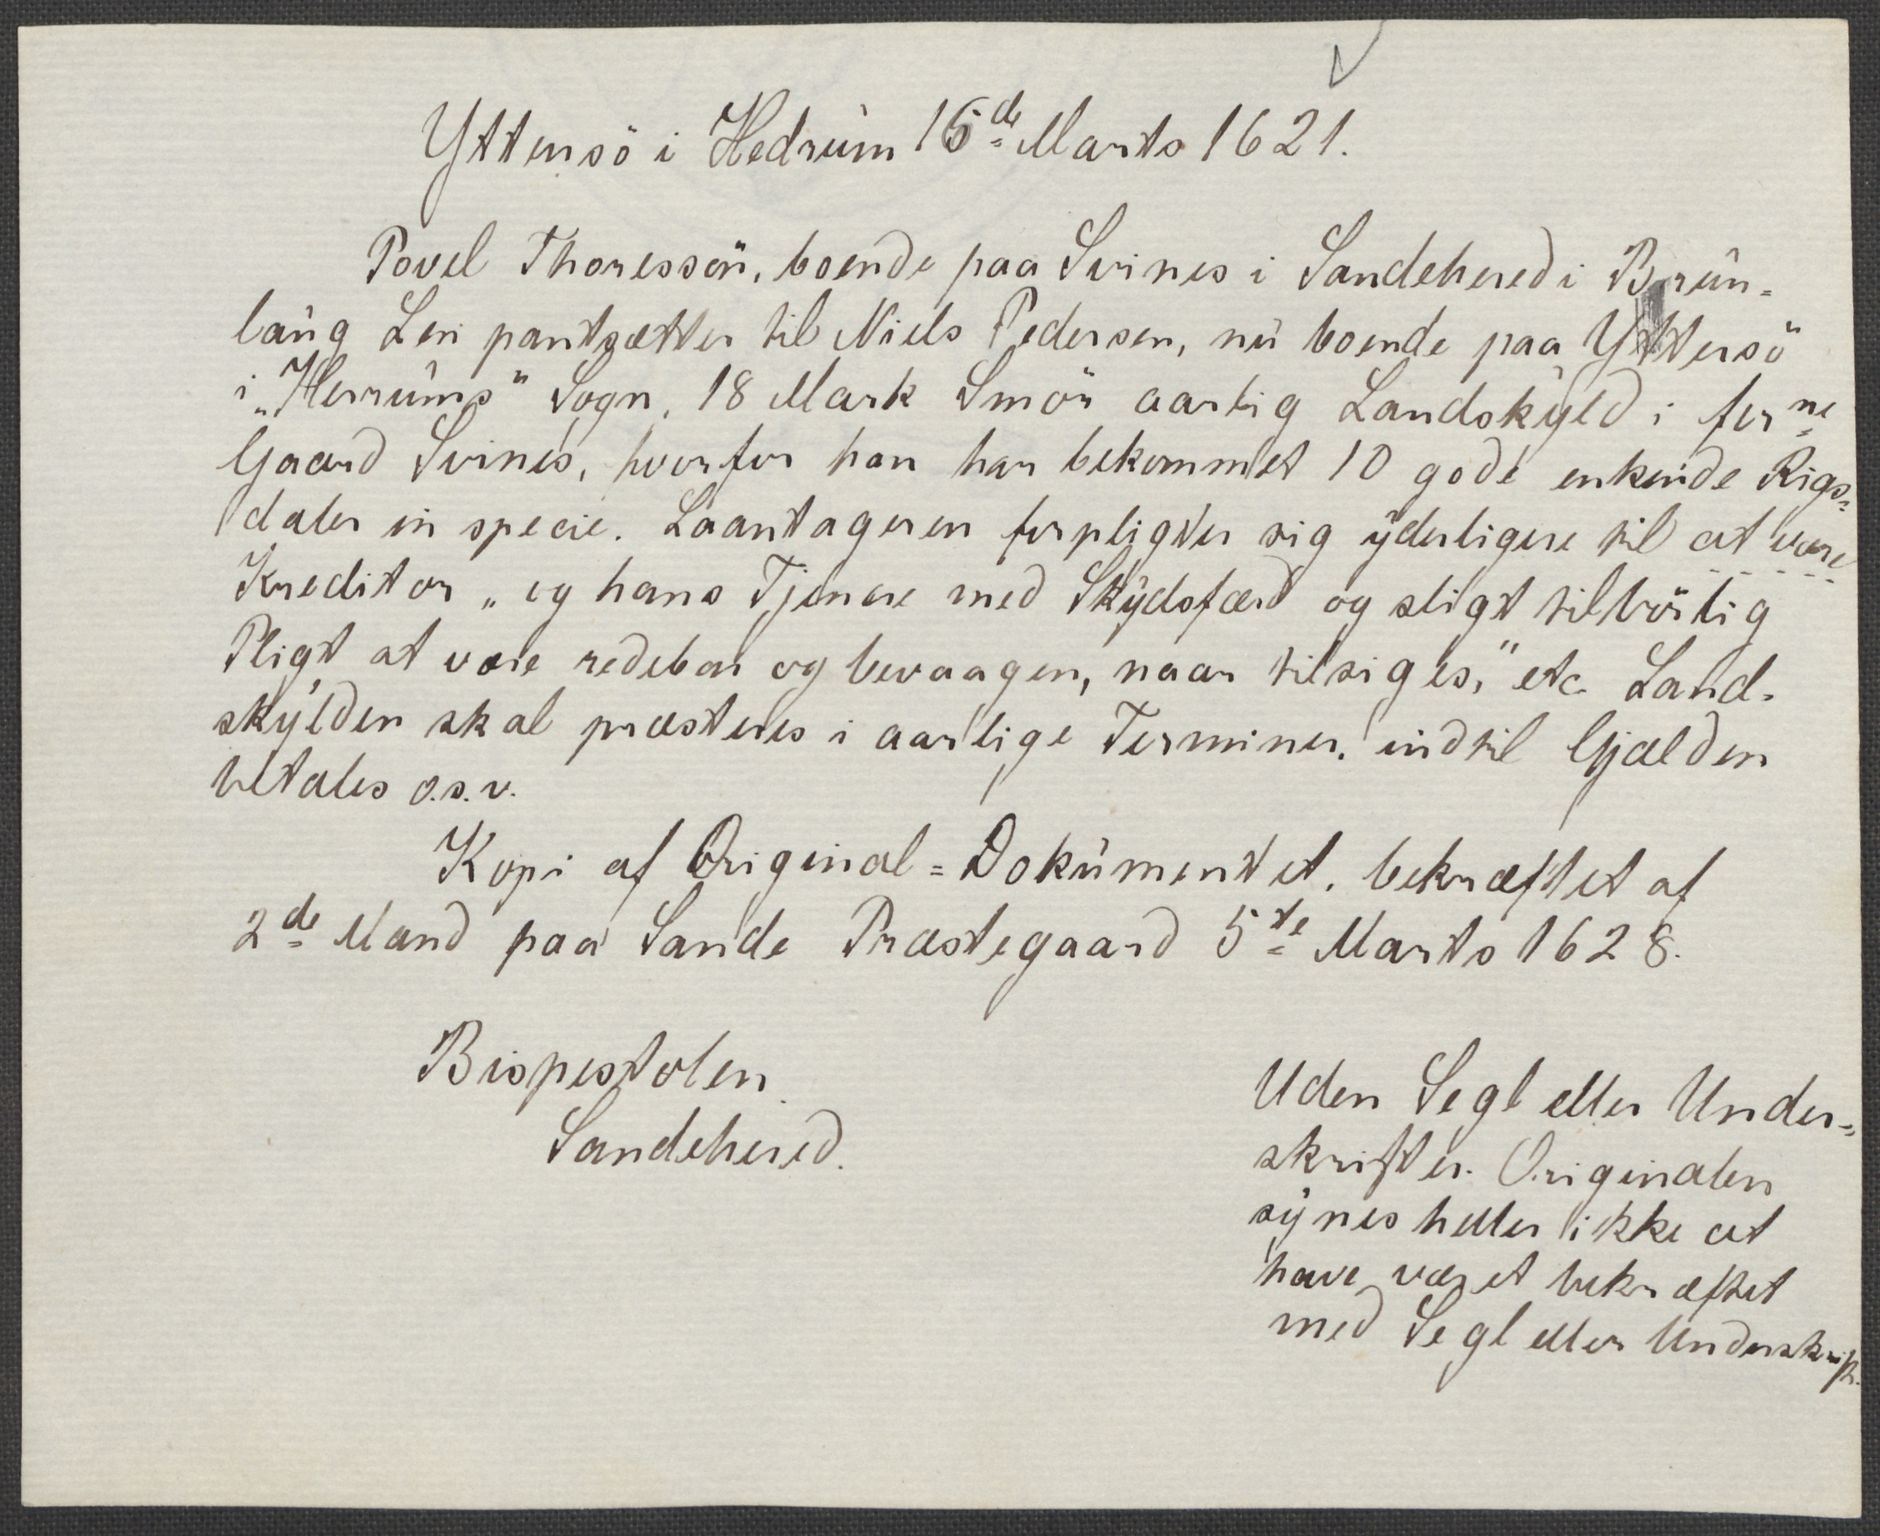 Yttersö i Hedrum 15de Marts 1621.
Povel Thoressön, boende paa Svines i Sandehered i Brun-
laug Len pantsætter til Niels Pedersen, nu boende paa Yttersö
i „Herrums" Sogn, 18 Mark Smör aarlig Landskyld i forne
Gaard Svines, hvorfor han har bekommet 10 gode enkende Rigs-
daler in specie. Laantageren forpligter sig yderligere til at være
Kreditor „og hans Tjenere med Skydsfærd og sligt tilbörlig
Pligt at være redebon og bevaagen, naar tilsiges," etc. Land-
skylden skal præsteres i aarlige Terminer, indtil Gjælden
betales o.s.v.
Kopi af Original=Dokumentet, bekræftet af
2de Mænd paa Sande Præstegaard 5te Marts 1628.
Bispestolen
Sandehered.
Uden Segl eller Under-
skrifter. Originalen
synes heller ikke at
have været bekræftet
med Segl eller Underskrift.